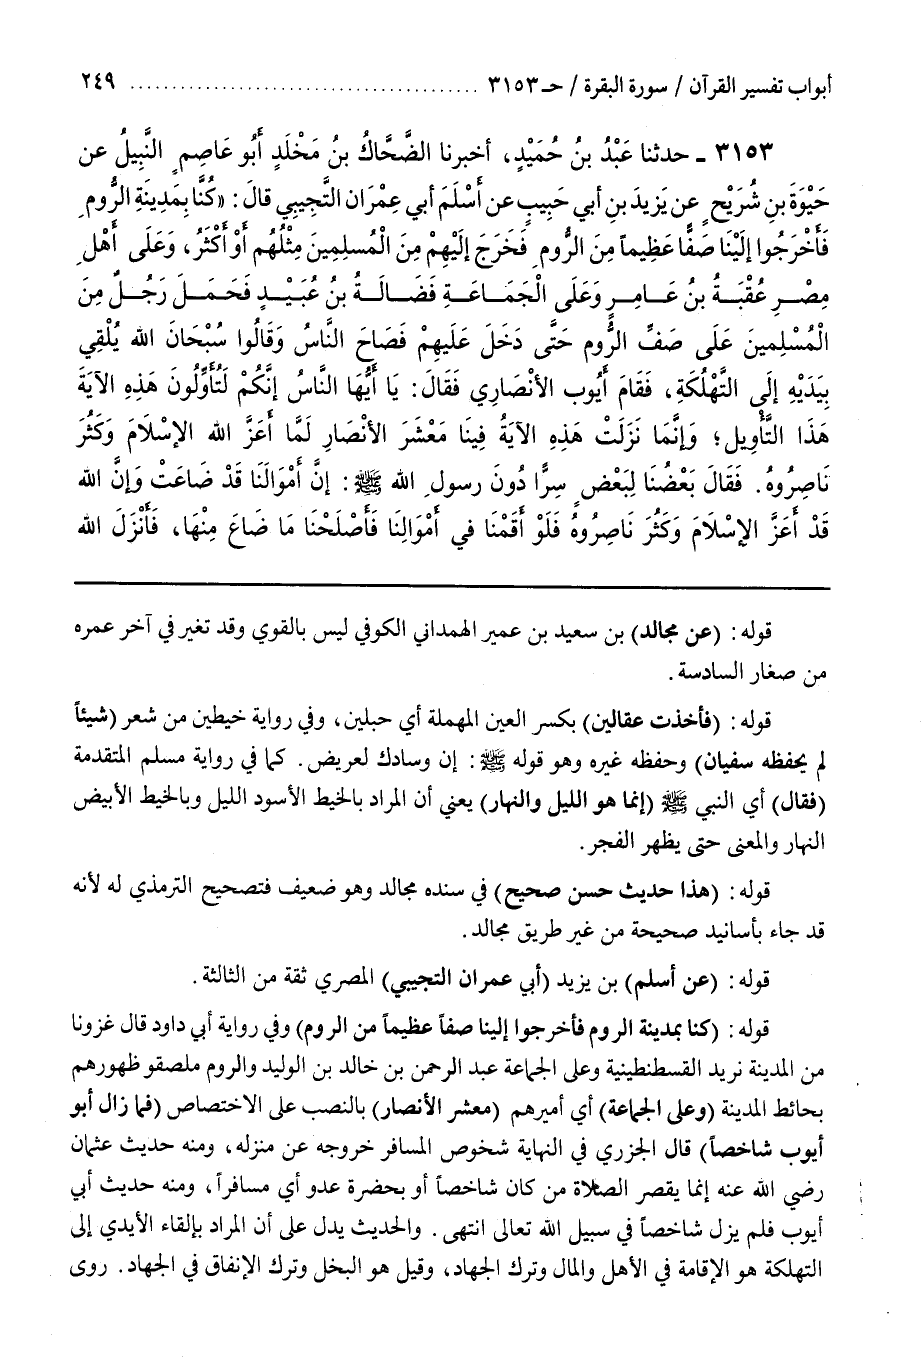 أبواب تفسير القرآن / سورة البقرة / حـ ٣١٥٣ ........................................ ٢٤٩
٣١٥٣ ـ حدثنا عَبْدُ بنُ حُمَيْدٍ، أخبرنا الضَّحَّاكُ بنُ مَخْلَدٍ أَبُو عَاصِمٍ النَّبِيلُ عن
حَيْوَةَ بنِ شُرَيْحٍ عن يَزِيدَ بنِ أبي حَبِيبٍ عن أَسْلَمَ أبي عِمْرَانَ التُّجِيبِي قالَ: «كُنَّا بِمَدِينَةِ الرُّومِ
فَأَخْرَجُوا إِلَيْنَا صَفًّا عَظِيماً مِنَ الرُّومِ فَخَرَجَ إِلَيْهِمْ مِنَ الْمُسلِمِينَ مِثْلُهُم أَوْ أَكْثَرُ، وَعَلَى أَهْلِ
مِصْرِ عُقْبَةُ بنُ عَامِرٍ وَعَلَى الْجَمَاعَةِ فَضَالَةُ بنُ عُبَيْدٍ فَحَمَلَ رَجُلٌ مِنَ
الْمُسْلِمِينَ عَلَى صَفِّ الرُّومِ حَتَّى دَخَلَ عَلَيهِمْ فَصَاحَ النَّاسُ وَقَالُوا سُبْحَانَ الله يُلْقِي
بِيَدَيْهِ إلَى التَّهْلُكَةِ، فَقَامَ أَيُوب الأنْصَارِي فَقَالَ: يَا أَيُّهَا النَّاسُ إنَّكُمْ لَتُأَوِّلُونَ هَذِهِ الآيَةَ
هَذَا التَّأْوِيلَ؛ وَإِنَّمَا نَزَلَتْ هَذِهِ الآيَةُ فِينَا مَعْشَرَ الأنْصَارِ لَمَّا أَعَزَّ الله الإسْلَامَ وَكَثُرَ
نَاصِرُوهُ. فَقَالَ بَعْضُنَا لِبَعْضٍ سِرًّا دُونَ رسولِ الله ﷺ: إنَّ أَمْوَالَنَا قَدْ ضَاعَتْ وَإنَّ الله
قَدْ أَعَزَّ الإسْلَامَ وَكَثُرَ نَاصِرُوهُ فَلَوْ أقَمْنَا في أَمْوَالِنَا فَأَصْلَحْنَا مَا ضَاعَ مِنْهَا، فَأَنْزَلَ الله
قوله: (عن مجالد) بن سعيد بن عمير الهمداني الكوفي ليس بالقوي وقد تغير في آخر عمره
من صغار السادسة.
قوله: (فأخذت عقالين) بكسر العين المهملة أي حبلين، وفي رواية خيطين من شعر (شيئاً
لم يحفظه سفيان) وحفظه غيره وهو قوله ﷺ: إن وسادك لعريض. كما في رواية مسلم المتقدمة
(فقال) أي النبي ﷺ (إنما هو الليل والنهار) يعني أن المراد بالخيط الأسود الليل وبالخيط الأبيض
النهار والمعنى حتى يظهر الفجر.
قوله: (هذا حديث حسن صحيح) في سنده مجالد وهو ضعيف فتصحيح الترمذي له لأنه
قد جاء بأسانيد صحيحة من غير طريق مجالد.
قوله: (عن أسلم) بن يزيد (أبي عمران التجيبي) المصري ثقة من الثالثة.
قوله: (كنا بمدينة الروم فأخرجوا إلينا صفاً عظيماً من الروم) وفي رواية أبي داود قال غزونا
من المدينة نريد القسطنطينية وعلى الجماعة عبد الرحمن بن خالد بن الوليد والروم ملصقو ظهورهم
بحائط المدينة (وعلى الجماعة) أي أميرهم (معشر الأنصار) بالنصب على الاختصاص (فما زال أبو
أيوب شاخصاً) قال الجزري في النهاية شخوص المسافر خروجه عن منزله، ومنه حديث عثمان
رضي الله عنه إنما يقصر الصلاة من كان شاخصاً أو بحضرة عدو أي مسافراً، ومنه حديث أبي
أيوب فلم يزل شاخصاً في سبيل الله تعالى انتهى. والحديث يدل على أن المراد بإلقاء الأيدي إلى
التهلكة هو الإقامة في الأهل والمال وترك الجهاد، وقيل هو البخل وترك الإنفاق في الجهاد. روى